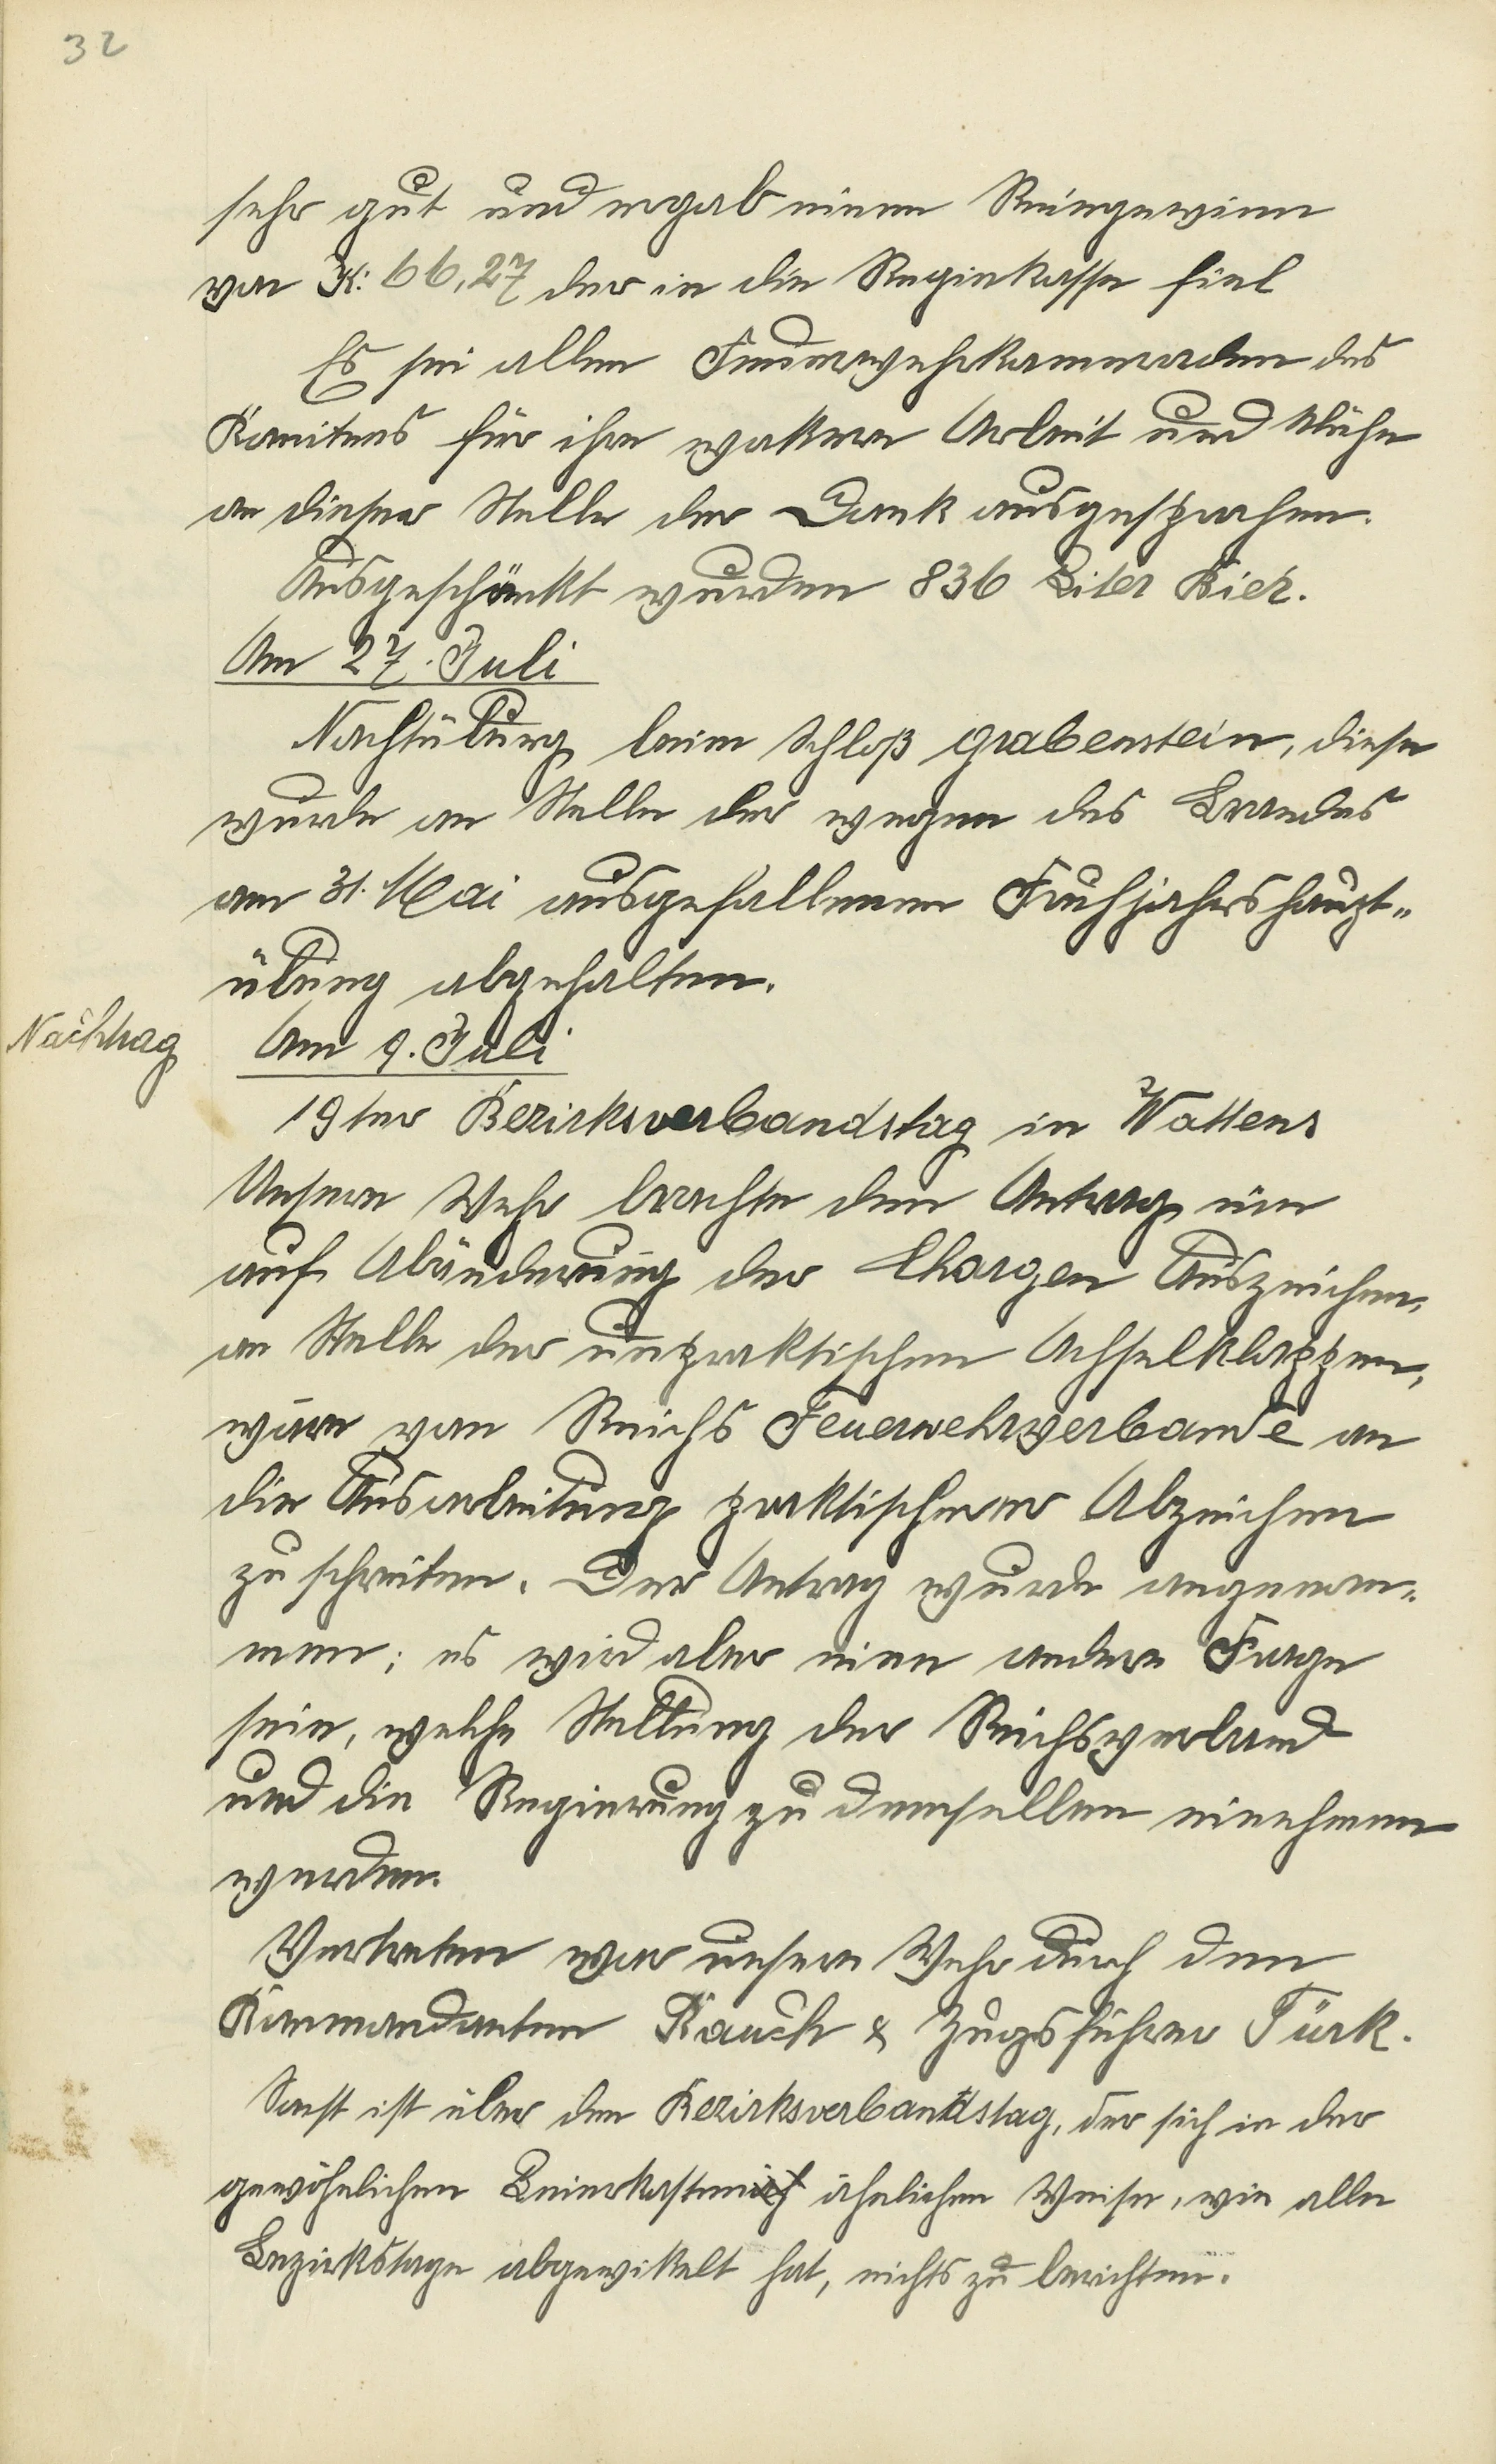 32
sehr gut und ergab einen Reingewinn
von K: 66,27 der in die Regiekasse fiel
Es sei allen Feuerwehrkammeraden des
Komitees für ihre wakere Arbeit und Mühe
an dieser Stelle der Dank ausgesprochen.
Ausgeschänkt wurden 836 Liter Bier.
Am 27. Juli
Nachtübung beim Schloß Grabenstein, diese
wurde an Stelle der wegen des Brandes
am 31. Mai ausgefallenen Fruhjahrshaupt-
übung abgehalten.
Nachtrag
Am 9. Juli
19ter Bezirksverbandstag in Wattens
Unsere Wehr brachte den Antrag ein
auf Abänderung der Chargen Auszeichen,
an Stelle der unpraktischen Achselklappen,
wäre vom Reichs Feuerwehrverbande an
die Ausarbeitung praktischerer Abzeichen
zu schreiten. Der Antrag wurde angenom-
men; es wird aber eine andere Frage
sein, welche Stellung der Reichsverband
und die Regierung zu demselben einehmen
werden.
Vertreten war unsere Wehr durch den
Kommandanten Rauch & Zugsführer Türk.
Sonst ist über den Bezirksverbandstag, der sich in der
gewöhnlichen Leierkasten ähnlichen Weise, wie alle
Bezirkstage abgewikelt hat, nichts zu berichten.